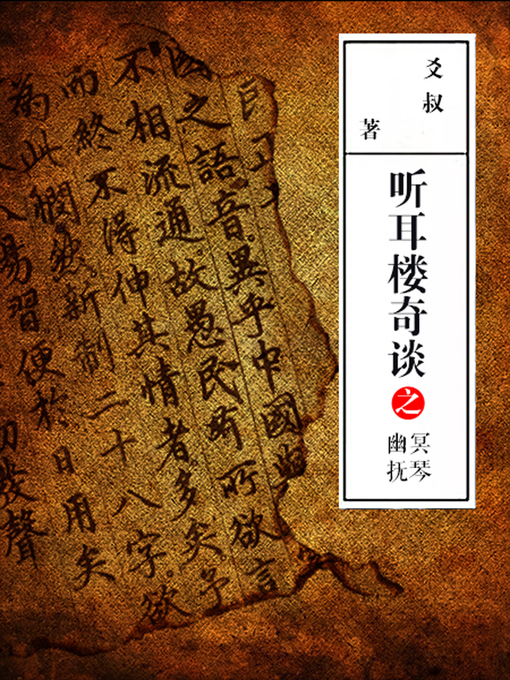 爻叔
著
听耳楼奇谈
之
幽冥
抚琴
之語音異乎中國與
不相流通故愚民有所欲言
而終不得伸其情者多矣予
為此憫然新制二十八字欲
人易習便於日用矣
初發聲